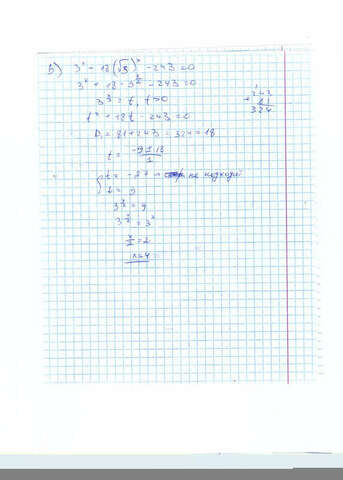 б) 3ˣ + 18(√3)ˣ - 243 = 0
3ˣ + 18 · 3^(x/2) - 243 = 0
3^(x/2) = t, t > 0
t² + 18t - 243 = 0
D₁ = 81 + 243 = 324 = 18
t = (-9 ± 18)/1
t = -27 не подходит
t = 9
3^(x/2) = 9
3^(x/2) = 3²
x/2 = 2
x = 4
243
+ 81
324